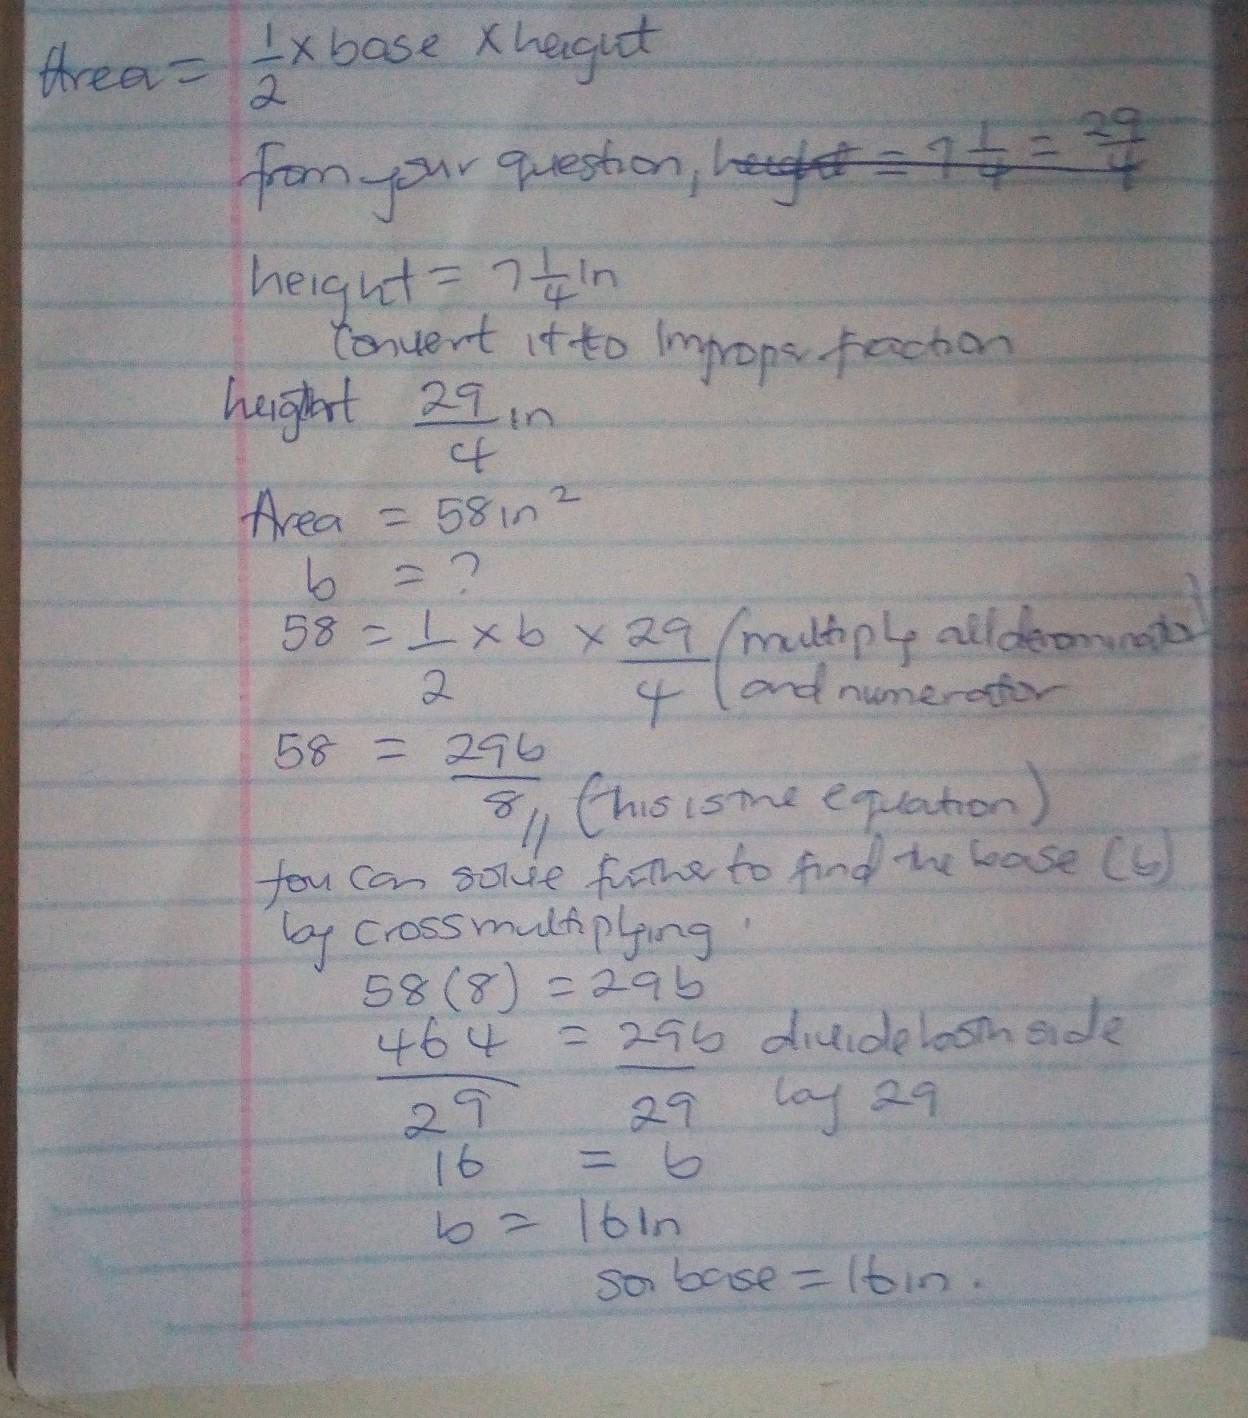 Area = 1/2 x base x height
from your question, height = 7 1/4 = 29/4
height = 7 1/4 in
Convert it to Improper fraction
height 29/4 in
Area = 58in²
b = ?
58 = 1/2 x b x 29/4 (multiply all denominator
and numerator)
58 = 29b/8 // (this is the equation)
You can solve further to find the base (b)
by cross multiplying.
58(8) = 29b
464/29 = 29b/29 divide both side
by 29
16 = b
b = 16in
so base = 16in.